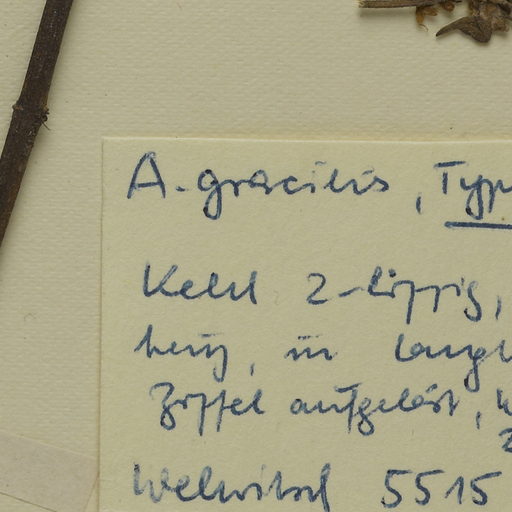 A. gracilis, Typ
Kelch 2-lippig,
in lang
Zipfel aufgelöst, w
Welwitsch 5515